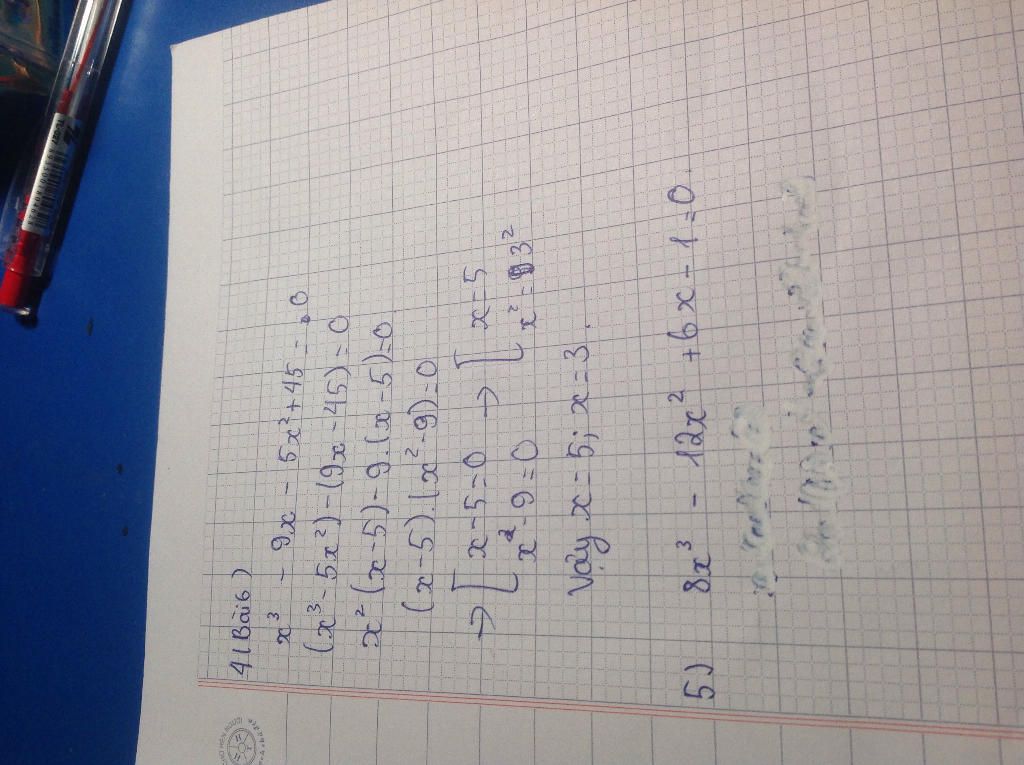 4) (Bài 6)
x³ - 9x - 5x² + 45 = 0
(x³ - 5x²) - (9x - 45) = 0
x² (x - 5) - 9. (x - 5) = 0
(x - 5). (x² - 9) = 0
→ [ x - 5 = 0 → [ x = 5
x² - 9 = 0 x² = 3²
Vậy x = 5; x = 3.
5) 8x³ - 12x² + 6x - 1 = 0